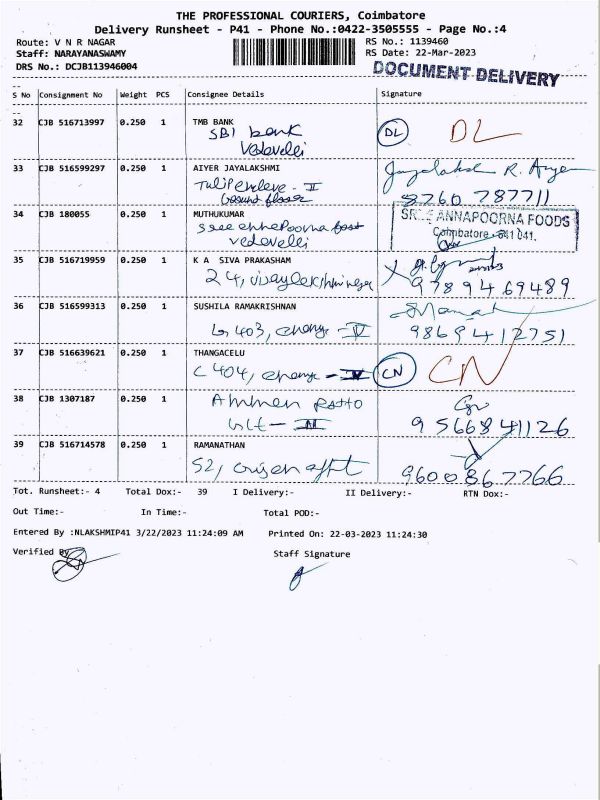 THE PROFESSIONAL COURIERS, Coimbatore
Delivery Runsheet - P41 - Phone No.:0422-3505555 - Page No.:4
Route: V N R NAGAR RS No.: 1139460
Staff: NARAYANASWAMY RS Date: 22-Mar-2023
DRS No.: DCJB113946004 DOCUMENT DELIVERY
S No Consignment No Weight PCS Consignee Details Signature
32 CJB 516713997 0.250 1 TMB BANK
SBI bank DL DL
Vedavelli
33 CJB 516599297 0.250 1 AIYER JAYALAKSHMI
Jayalaksh R. Aiyer
Tulip enclave - II
Ground floor 8760 787711
34 CJB 180055 0.250 1 MUTHUKUMAR SREE ANNAPOORNA FOODS
Sree annapoorna food Coimbatore - 641 041.
vedavelli
35 CJB 516719959 0.250 1 K A SIVA PRAKASHAM
24, 9789469489
36 CJB 516599313 0.250 1 SUSHILA RAMAKRISHNAN
403, - V 98694 12751
37 CJB 516639621 0.250 1 THANGACELU
C 404, - IV CN CN
38 CJB 1307187 0.250 1
9566841126
39 CJB 516714578 0.250 1 RAMANATHAN
S2, 9600867766
Tot. Runsheet:- 4 Total Dox:- 39 I Delivery:- II Delivery:- RTN Dox:-
Out Time:- In Time:- Total POD:-
Entered By :NLAKSHMIP41 3/22/2023 11:24:09 AM Printed On: 22-03-2023 11:24:30
Verified By Staff Signature